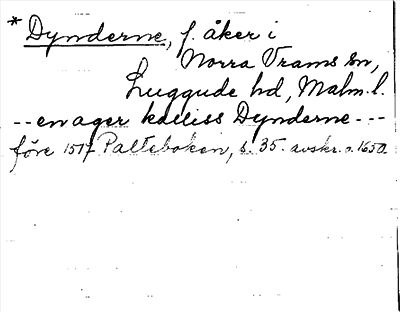 * Dynderne, f. åker i
Norra Vrams sn,
Luggude hd, Malm. l.
-- en ager kalliss Dynderne ---
före 1517 Palteboken, s. 35. avskr. o. 1650.